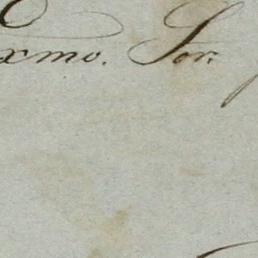 xmo. Sor.